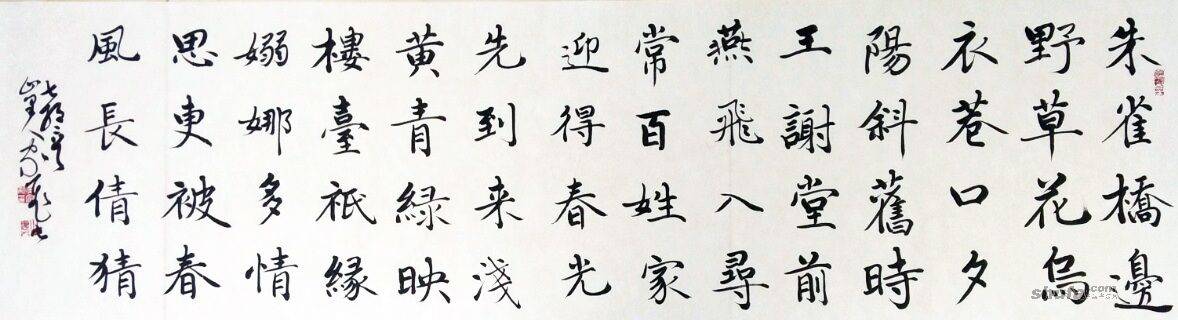 朱雀橋邊
野草花烏
衣巷口夕
陽斜舊時
王謝堂前
燕飛入尋
常百姓家
迎得春光
先到来淺
黄青緑映
樓臺祇緣
嫋娜多情
思更被春
風長倩猜
shufa.com